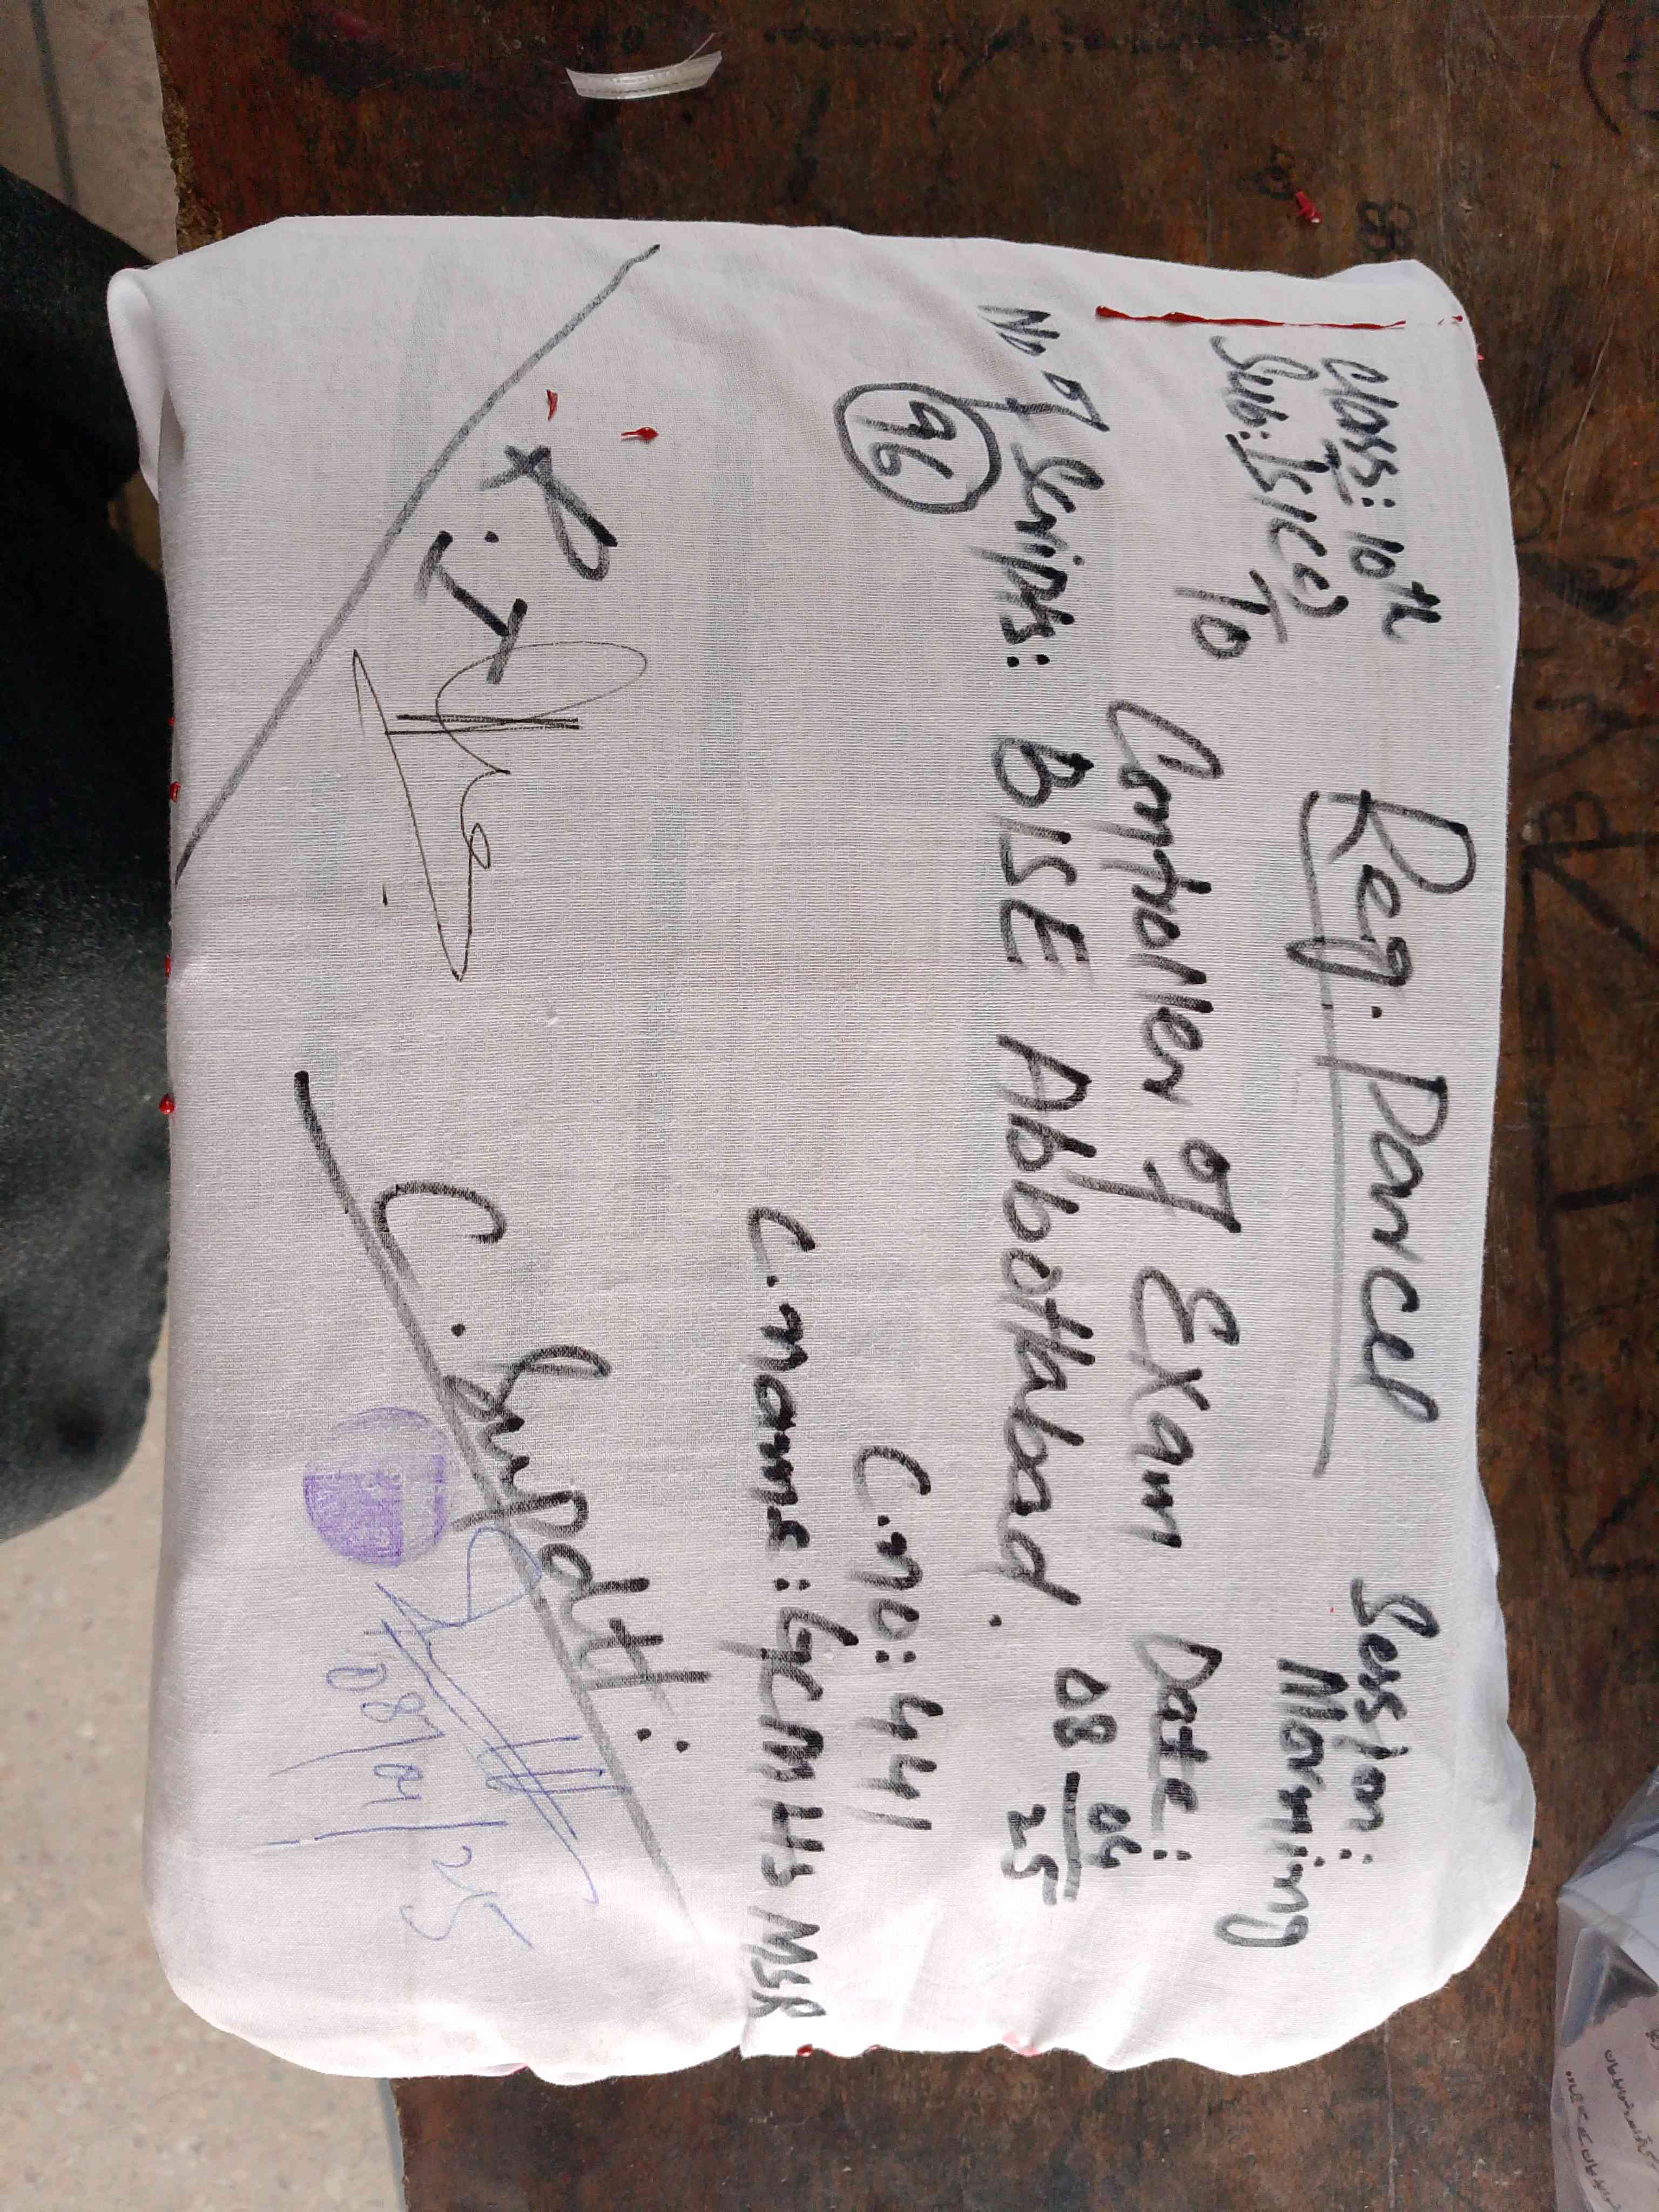 Reg. Parcel
Class: 10th
Sub: Isl(c)
Session:
Morning
To
Controller of Exam
BISE Abbottabad.
Date:
08-04
25
No of Scripts:
96
C.no: 441
C.name: GCMHS MSR
R.I
C. Supdtt:
08/04/25